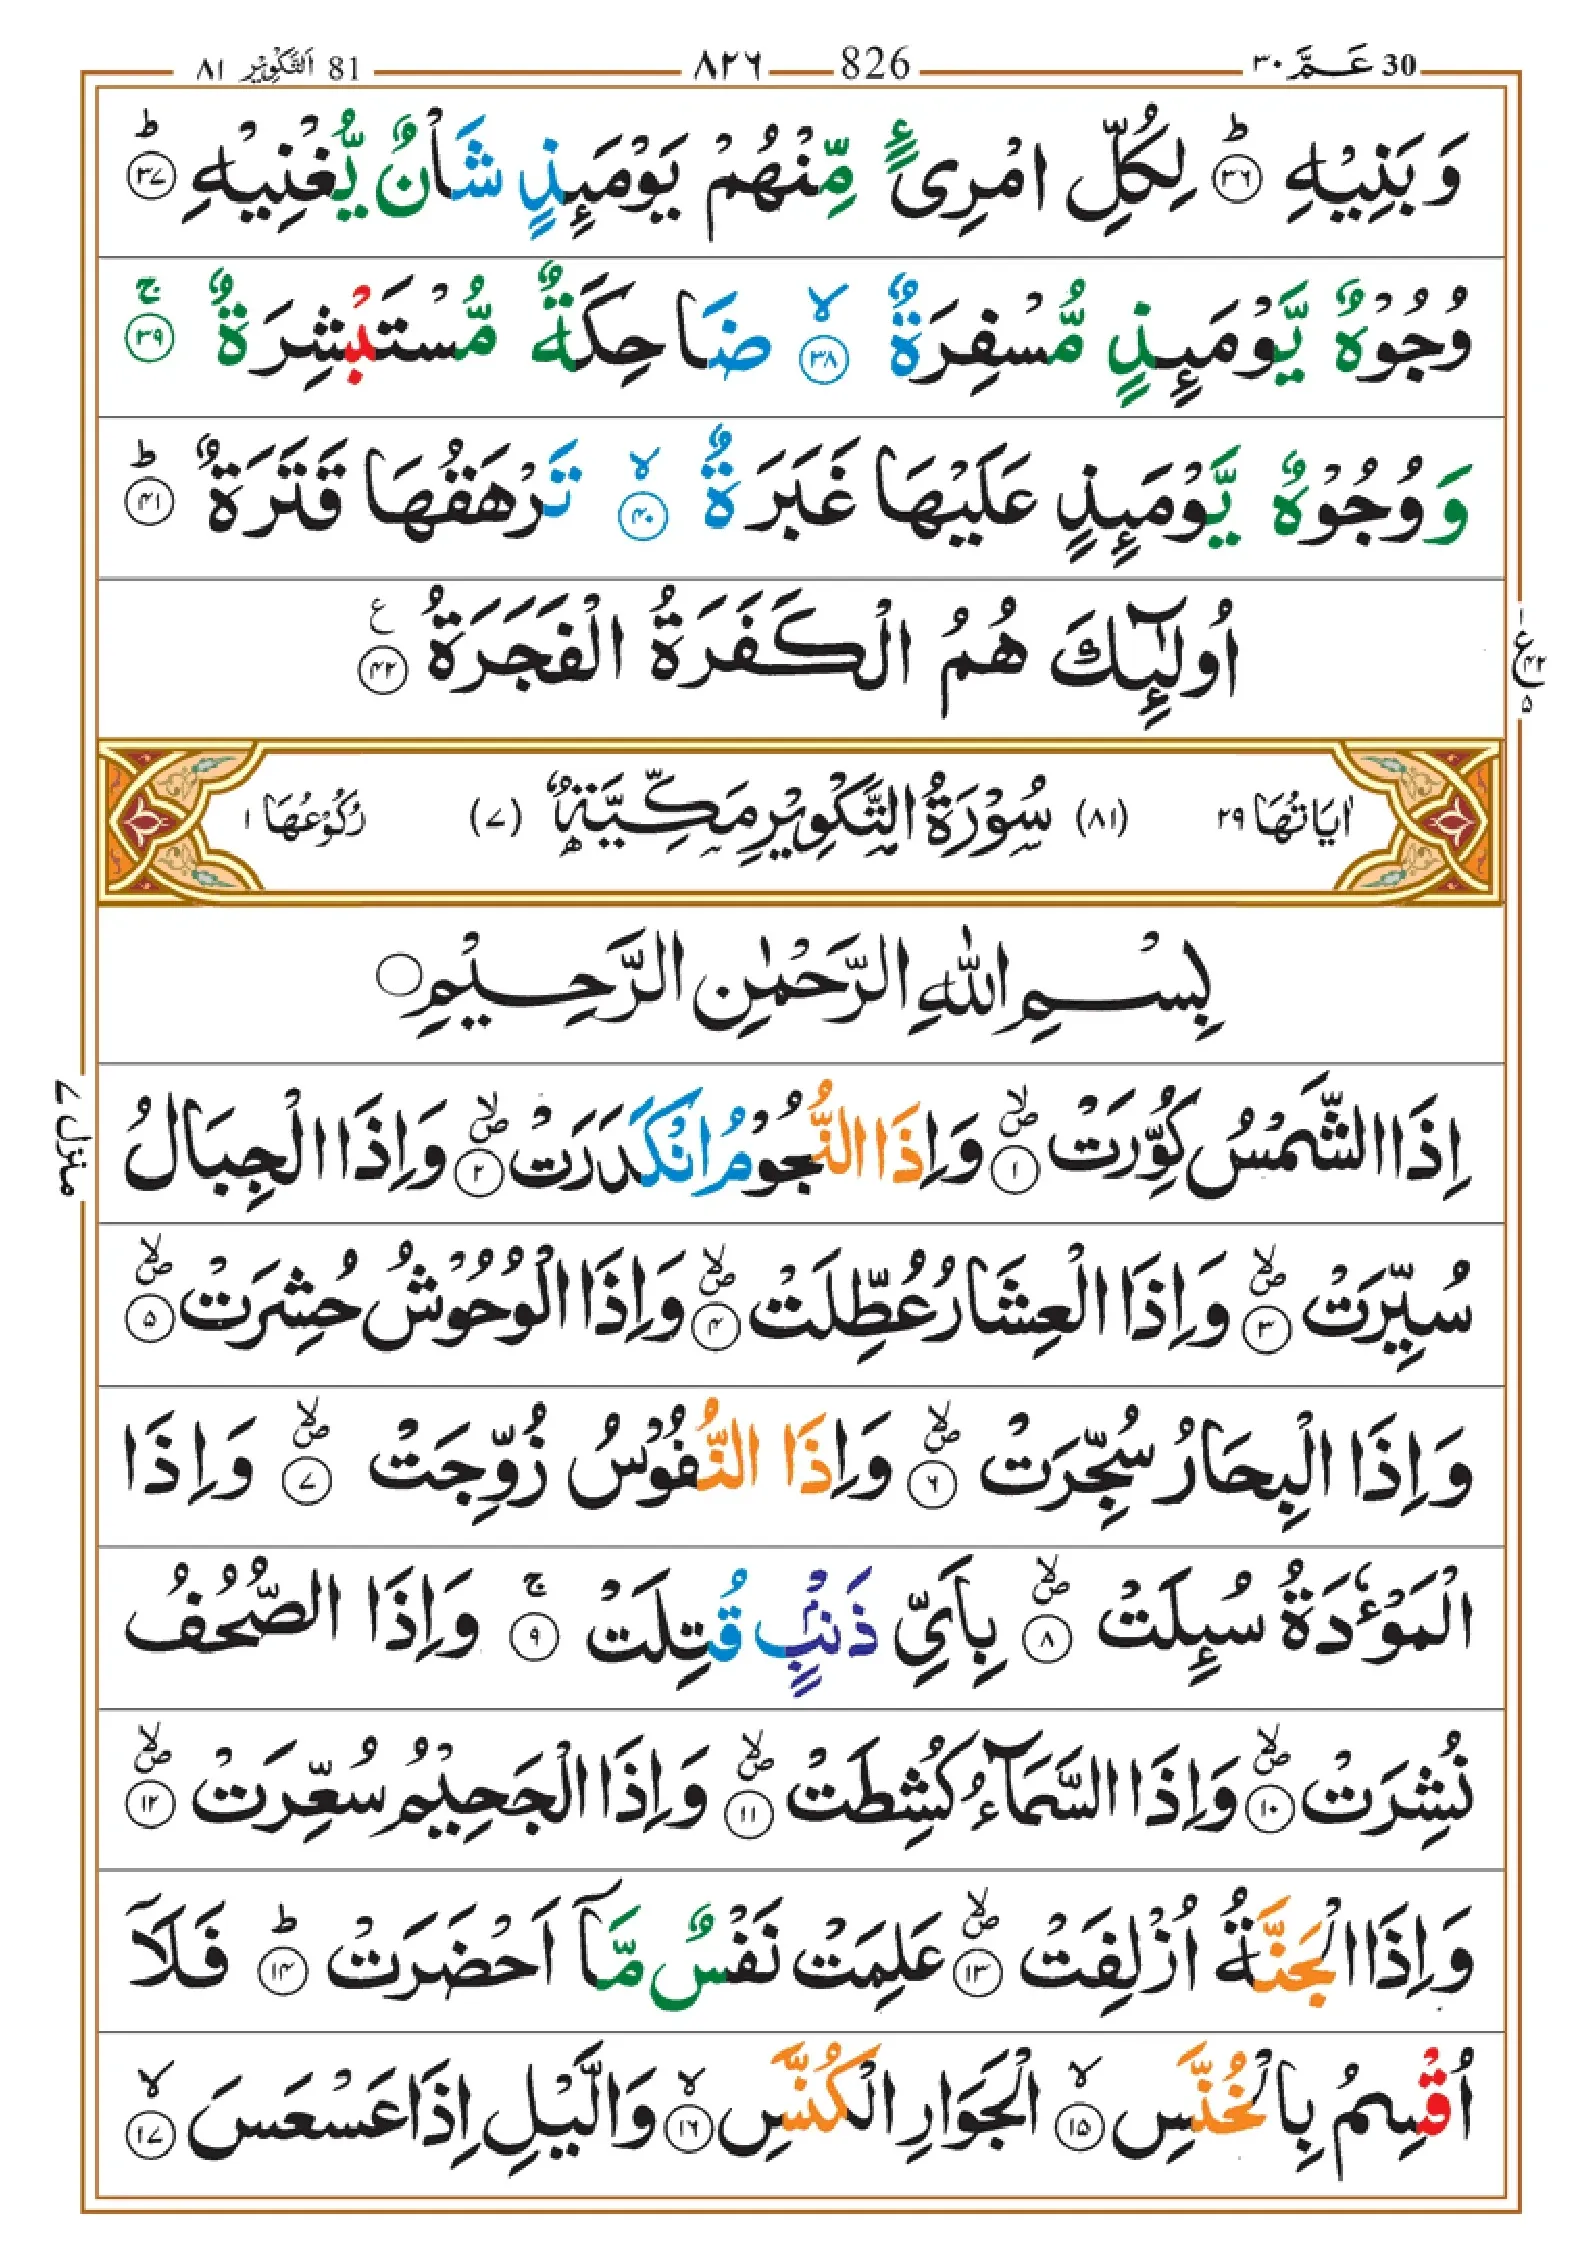 30 عَمَّ ٣٠ 826 ٨٢٦ 81 اَلتَّكْوِيْر ٨١
وَبَنِيْهِ ﴿٣٦﴾ؕ لِكُلِّ امْرِئٍ مِّنْهُمْ يَوْمَئِذٍ شَاْنٌ يُّغْنِيْهِ ﴿٣٧﴾ؕ
وُجُوْهٌ يَّوْمَئِذٍ مُّسْفِرَةٌ ﴿٣٨﴾ۙ ضَاحِكَةٌ مُّسْتَبْشِرَةٌ ﴿٣٩﴾ۚ
وَوُجُوْهٌ يَّوْمَئِذٍ عَلَيْهَا غَبَرَةٌ ﴿٤٠﴾ۙ تَرْهَقُهَا قَتَرَةٌ ﴿٤١﴾ؕ
اُولٰٓئِكَ هُمُ الْكَفَرَةُ الْفَجَرَةُ ﴿٤٢﴾ ع
١ ع ٤٢ ٥
اٰيَاتُهَا ٢٩ (٨١) سُوْرَةُ التَّكْوِيْرِ مَكِّيَّةٌ (٧) رُكُوْعُهَا ١
بِسْمِ اللّٰهِ الرَّحْمٰنِ الرَّحِيْمِ
اِذَا الشَّمْسُ كُوِّرَتْ ﴿١﴾ۙ ص وَاِذَا النُّجُوْمُ انْكَدَرَتْ ﴿٢﴾ۙ ص وَاِذَا الْجِبَالُ
منزل ٧
سُيِّرَتْ ﴿٣﴾ۙ ص وَاِذَا الْعِشَارُ عُطِّلَتْ ﴿٤﴾ۙ ص وَاِذَا الْوُحُوْشُ حُشِرَتْ ﴿٥﴾ۙ ص
وَاِذَا الْبِحَارُ سُجِّرَتْ ﴿٦﴾ۙ ص وَاِذَا النُّفُوْسُ زُوِّجَتْ ﴿٧﴾ۙ ص وَاِذَا
الْمَوْءٗدَةُ سُئِلَتْ ﴿٨﴾ۙ ص بِاَيِّ ذَنْۢبٍ قُتِلَتْ ﴿٩﴾ۚ وَاِذَا الصُّحُفُ
نُشِرَتْ ﴿١٠﴾ۙ ص وَاِذَا السَّمَآءُ كُشِطَتْ ﴿١١﴾ۙ ص وَاِذَا الْجَحِيْمُ سُعِّرَتْ ﴿١٢﴾ۙ ص
وَاِذَا الْجَنَّةُ اُزْلِفَتْ ﴿١٣﴾ۙ ص عَلِمَتْ نَفْسٌ مَّآ اَحْضَرَتْ ﴿١٤﴾ؕ فَلَآ
اُقْسِمُ بِالْخُنَّسِ ﴿١٥﴾ۙ الْجَوَارِ الْكُنَّسِ ﴿١٦﴾ۙ وَالَّيْلِ اِذَا عَسْعَسَ ﴿١٧﴾ۙ